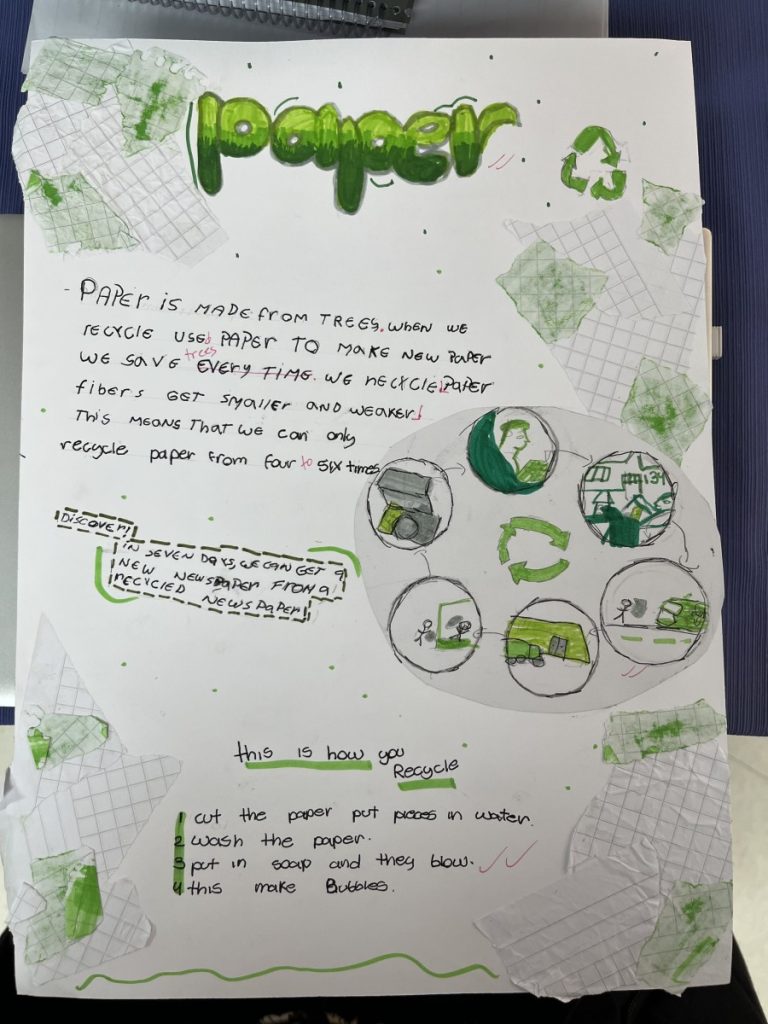 paper
- PAPER is MADE from TREES. WHEN WE
RECYCLE USED PAPER TO MAKE NEW PAPER
WE SAVE trees EVERY TIME. WE RECYCLE PAPER
fibers GET SMALLER AND WEAKER.
THIS MEANS THAT WE CAN ONLY
recycle paper from four to SIX times
DISCOVER!
IN SEVEN DAYS, WE CAN GET a
NEW NEWSPAPER FROM a
RECYCLED NEWSPAPER
this is how you
Recycle
1 cut the paper put pieces in water.
2 wash the paper.
3 put in soap and they blow.
4 this make Bubbles.